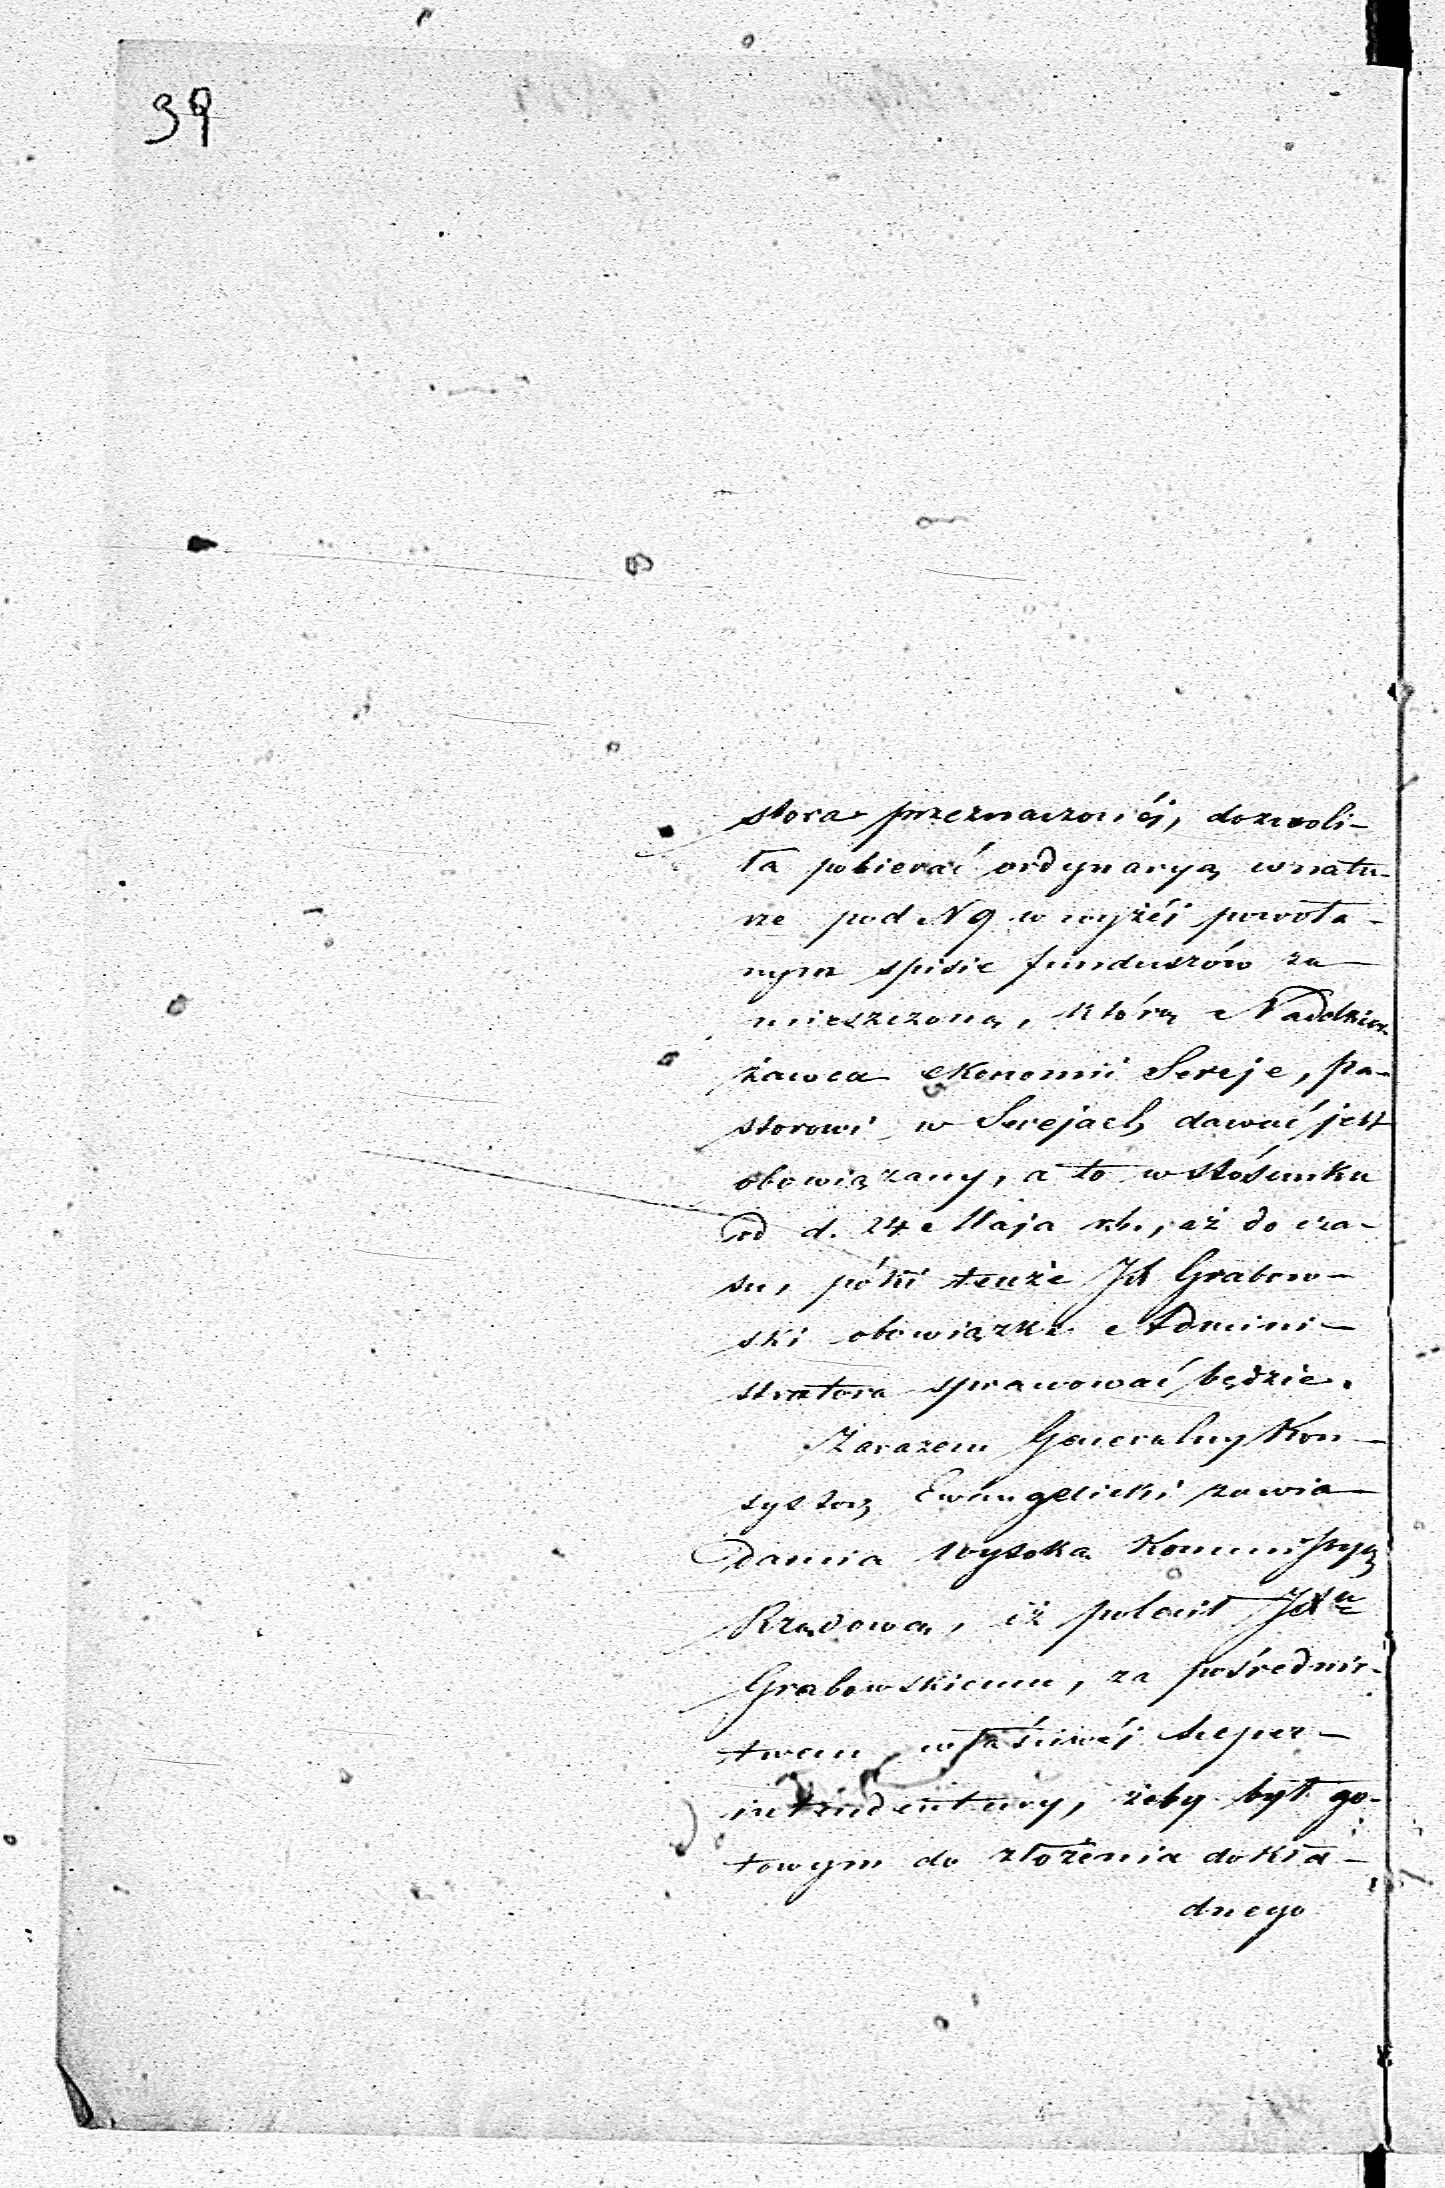 39
stora przeznaczonéj, dozwoli-
ła pobierać ordynaryą w natu-
rze pod N 9 w wyżéj powoła-
nym spisie funduszów za-
mieszczoną, którą Naddzier-
żawca ekonomii Sereje, pa-
storowi w Serejach dawać jest
obowiązany, a to w stósunku
od d. 24 Maja rb., aż do cza-
su, póki tenże JX Grabow-
ski obowiązki Admini-
stratora sprawować będzie.
Zarazem Generalny Kon-
systorz Ewangelicki zawia-
damia Wysoką Kommissyą
Rządową, iż polecił JXu
Grabowskiemu, za pośrednic-
twem właściwéj Super-
intendentury, żeby był go-
towym do złożenia dokła-
dnego